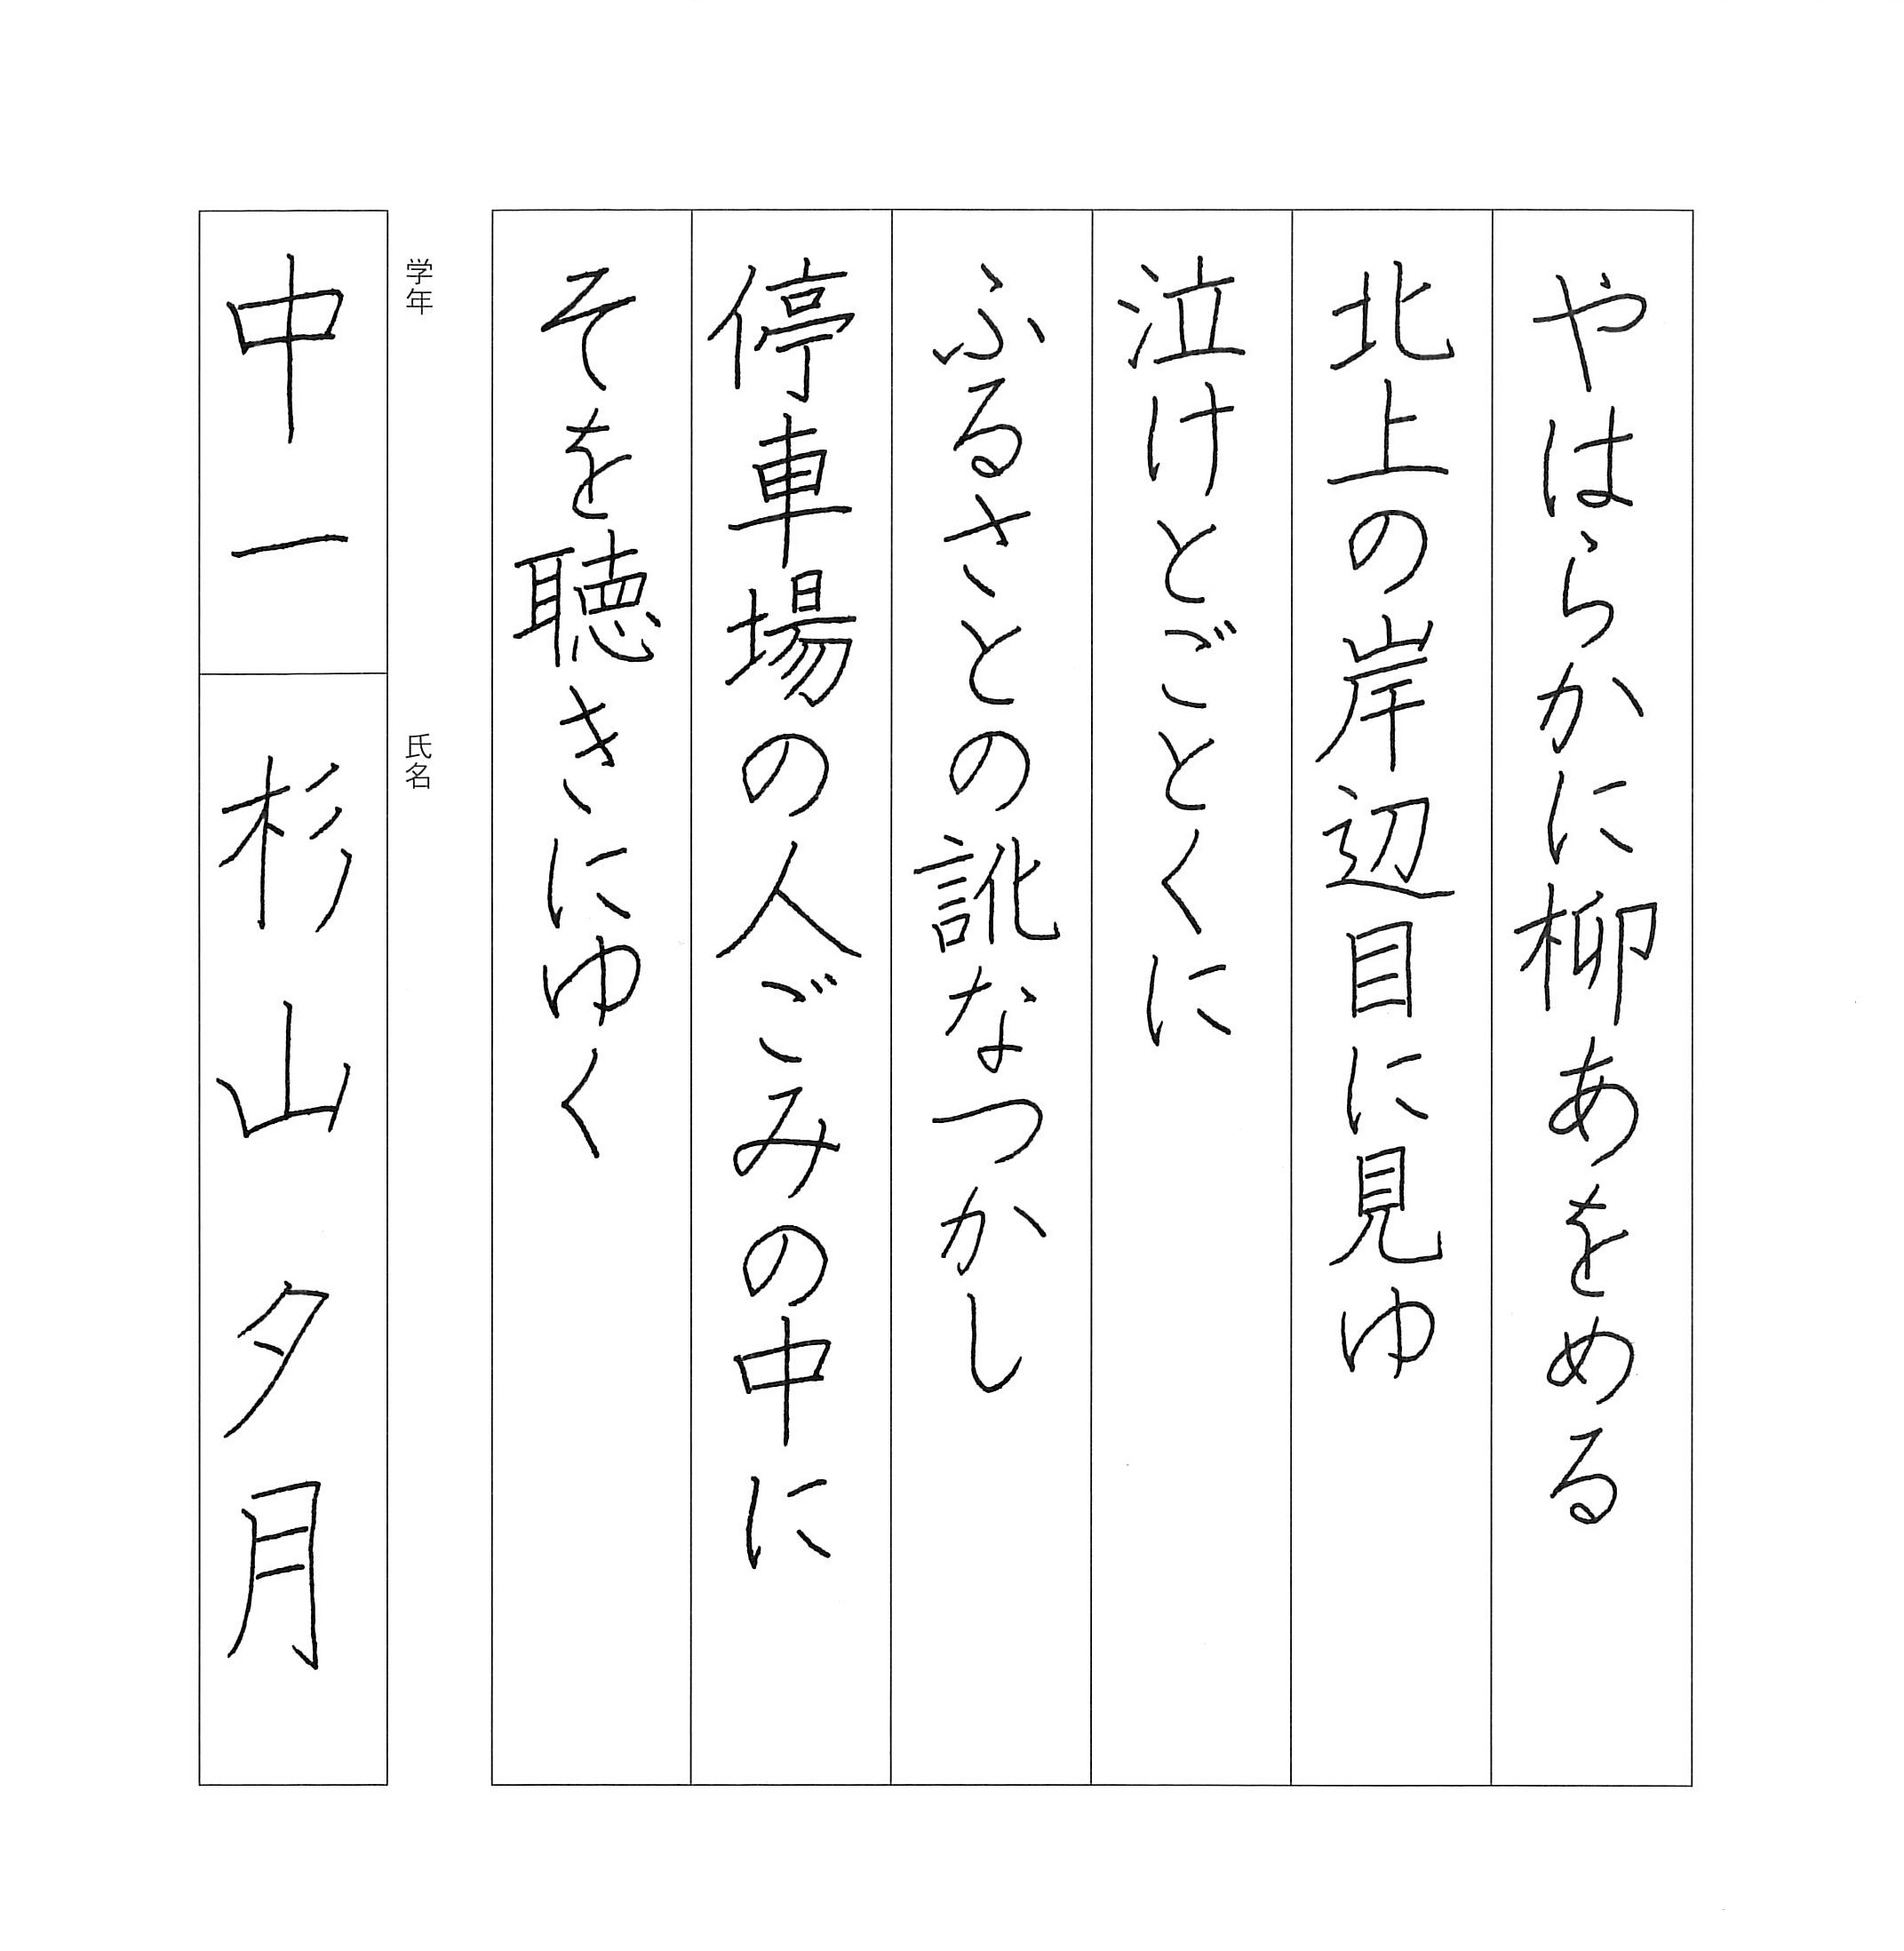 やはらかに柳あをめる
北上の岸辺目に見ゆ
泣けとごとくに
ふるさとの訛なつかし
停車場の人ごみの中に
そを聴きにゆく
学年
中一
氏名
杉山夕月